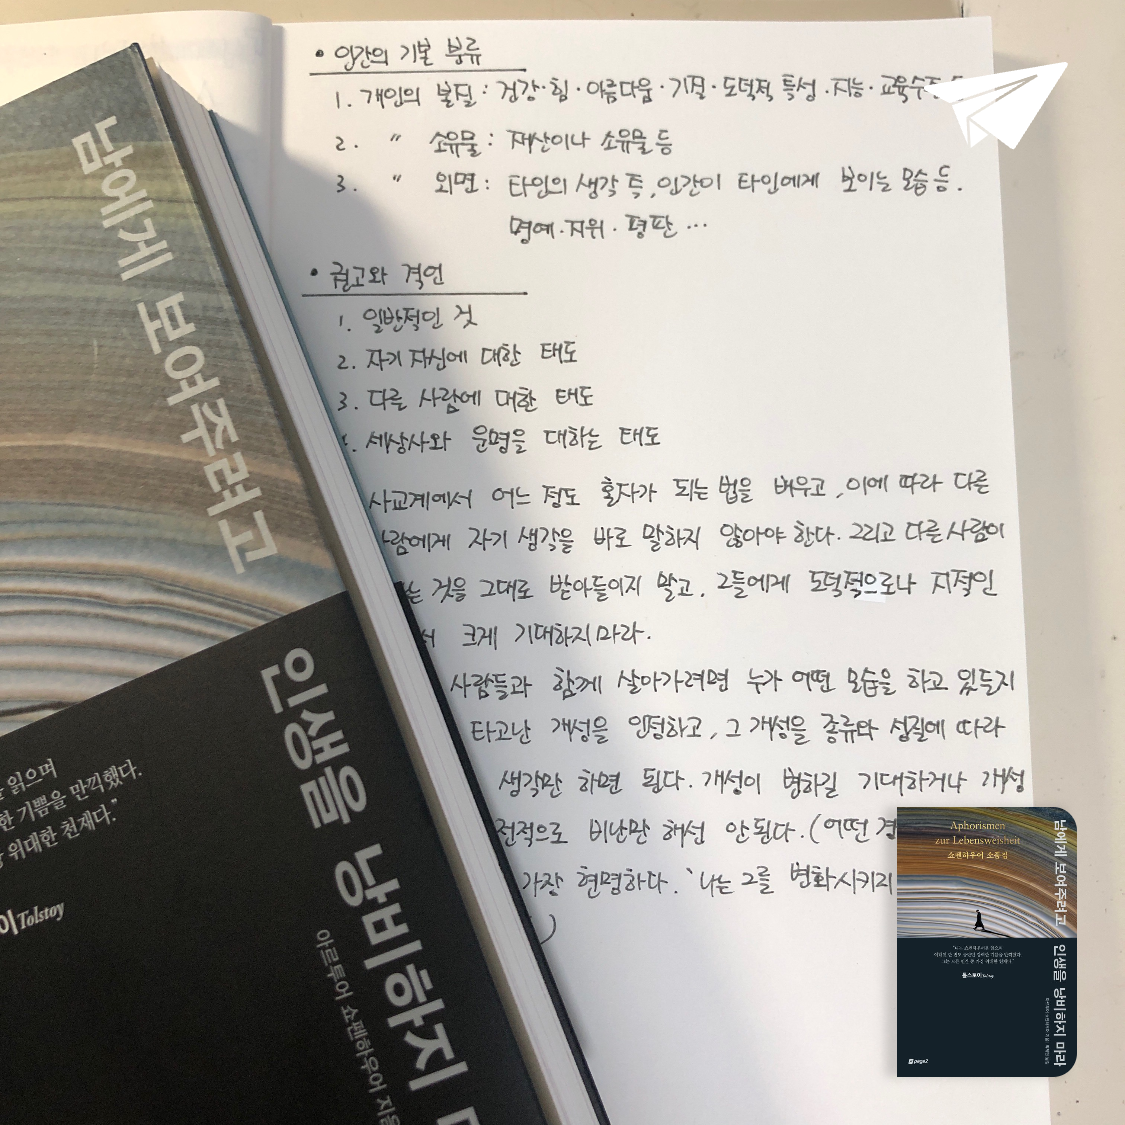 • 인간의 기본 분류
1. 개인의 본질 : 건강·힘·아름다움·기질·도덕적 특성·지능·교육수준
2. " 소유물 : 재산이나 소유물 등
3. " 외면 : 타인의 생각 즉, 인간이 타인에게 보이는 모습 등.
명예·지위·평판 …
• 권고와 격언
1. 일반적인 것
2. 자기 자신에 대한 태도
3. 다른 사람에 대한 태도
4. 세상사와 운명을 대하는 태도
사교계에서 어느 정도 혼자가 되는 법을 배우고, 이에 따라 다른
사람에게 자기 생각을 바로 말하지 않아야 한다. 그리고 다른 사람이
는 것을 그대로 받아들이지 말고, 그들에게 도덕적으로나 지적인
서 크게 기대하지 마라.
사람들과 함께 살아가려면 누가 어떤 모습을 하고 있든지
타고난 개성을 인정하고, 그 개성을 종류와 성질에 따라
생각만 하면 된다. 개성이 변하길 기대하거나 개성
전적으로 비난만 해선 안된다. (어떤 경
가장 현명하다. '나는 그를 변화시키지
)
남에게 보여주려고
인생을 낭비하지
아르투어 쇼펜하우어 지음
읽으며
한 기쁨을 만끽했다.
위대한 천재다."
이 Tolstoy
Aphorismen
zur Lebensweisheit
쇼펜하우어 소품집
남에게 보여주려고 인생을 낭비하지 마라
톨스토이 Tolstoy
page2